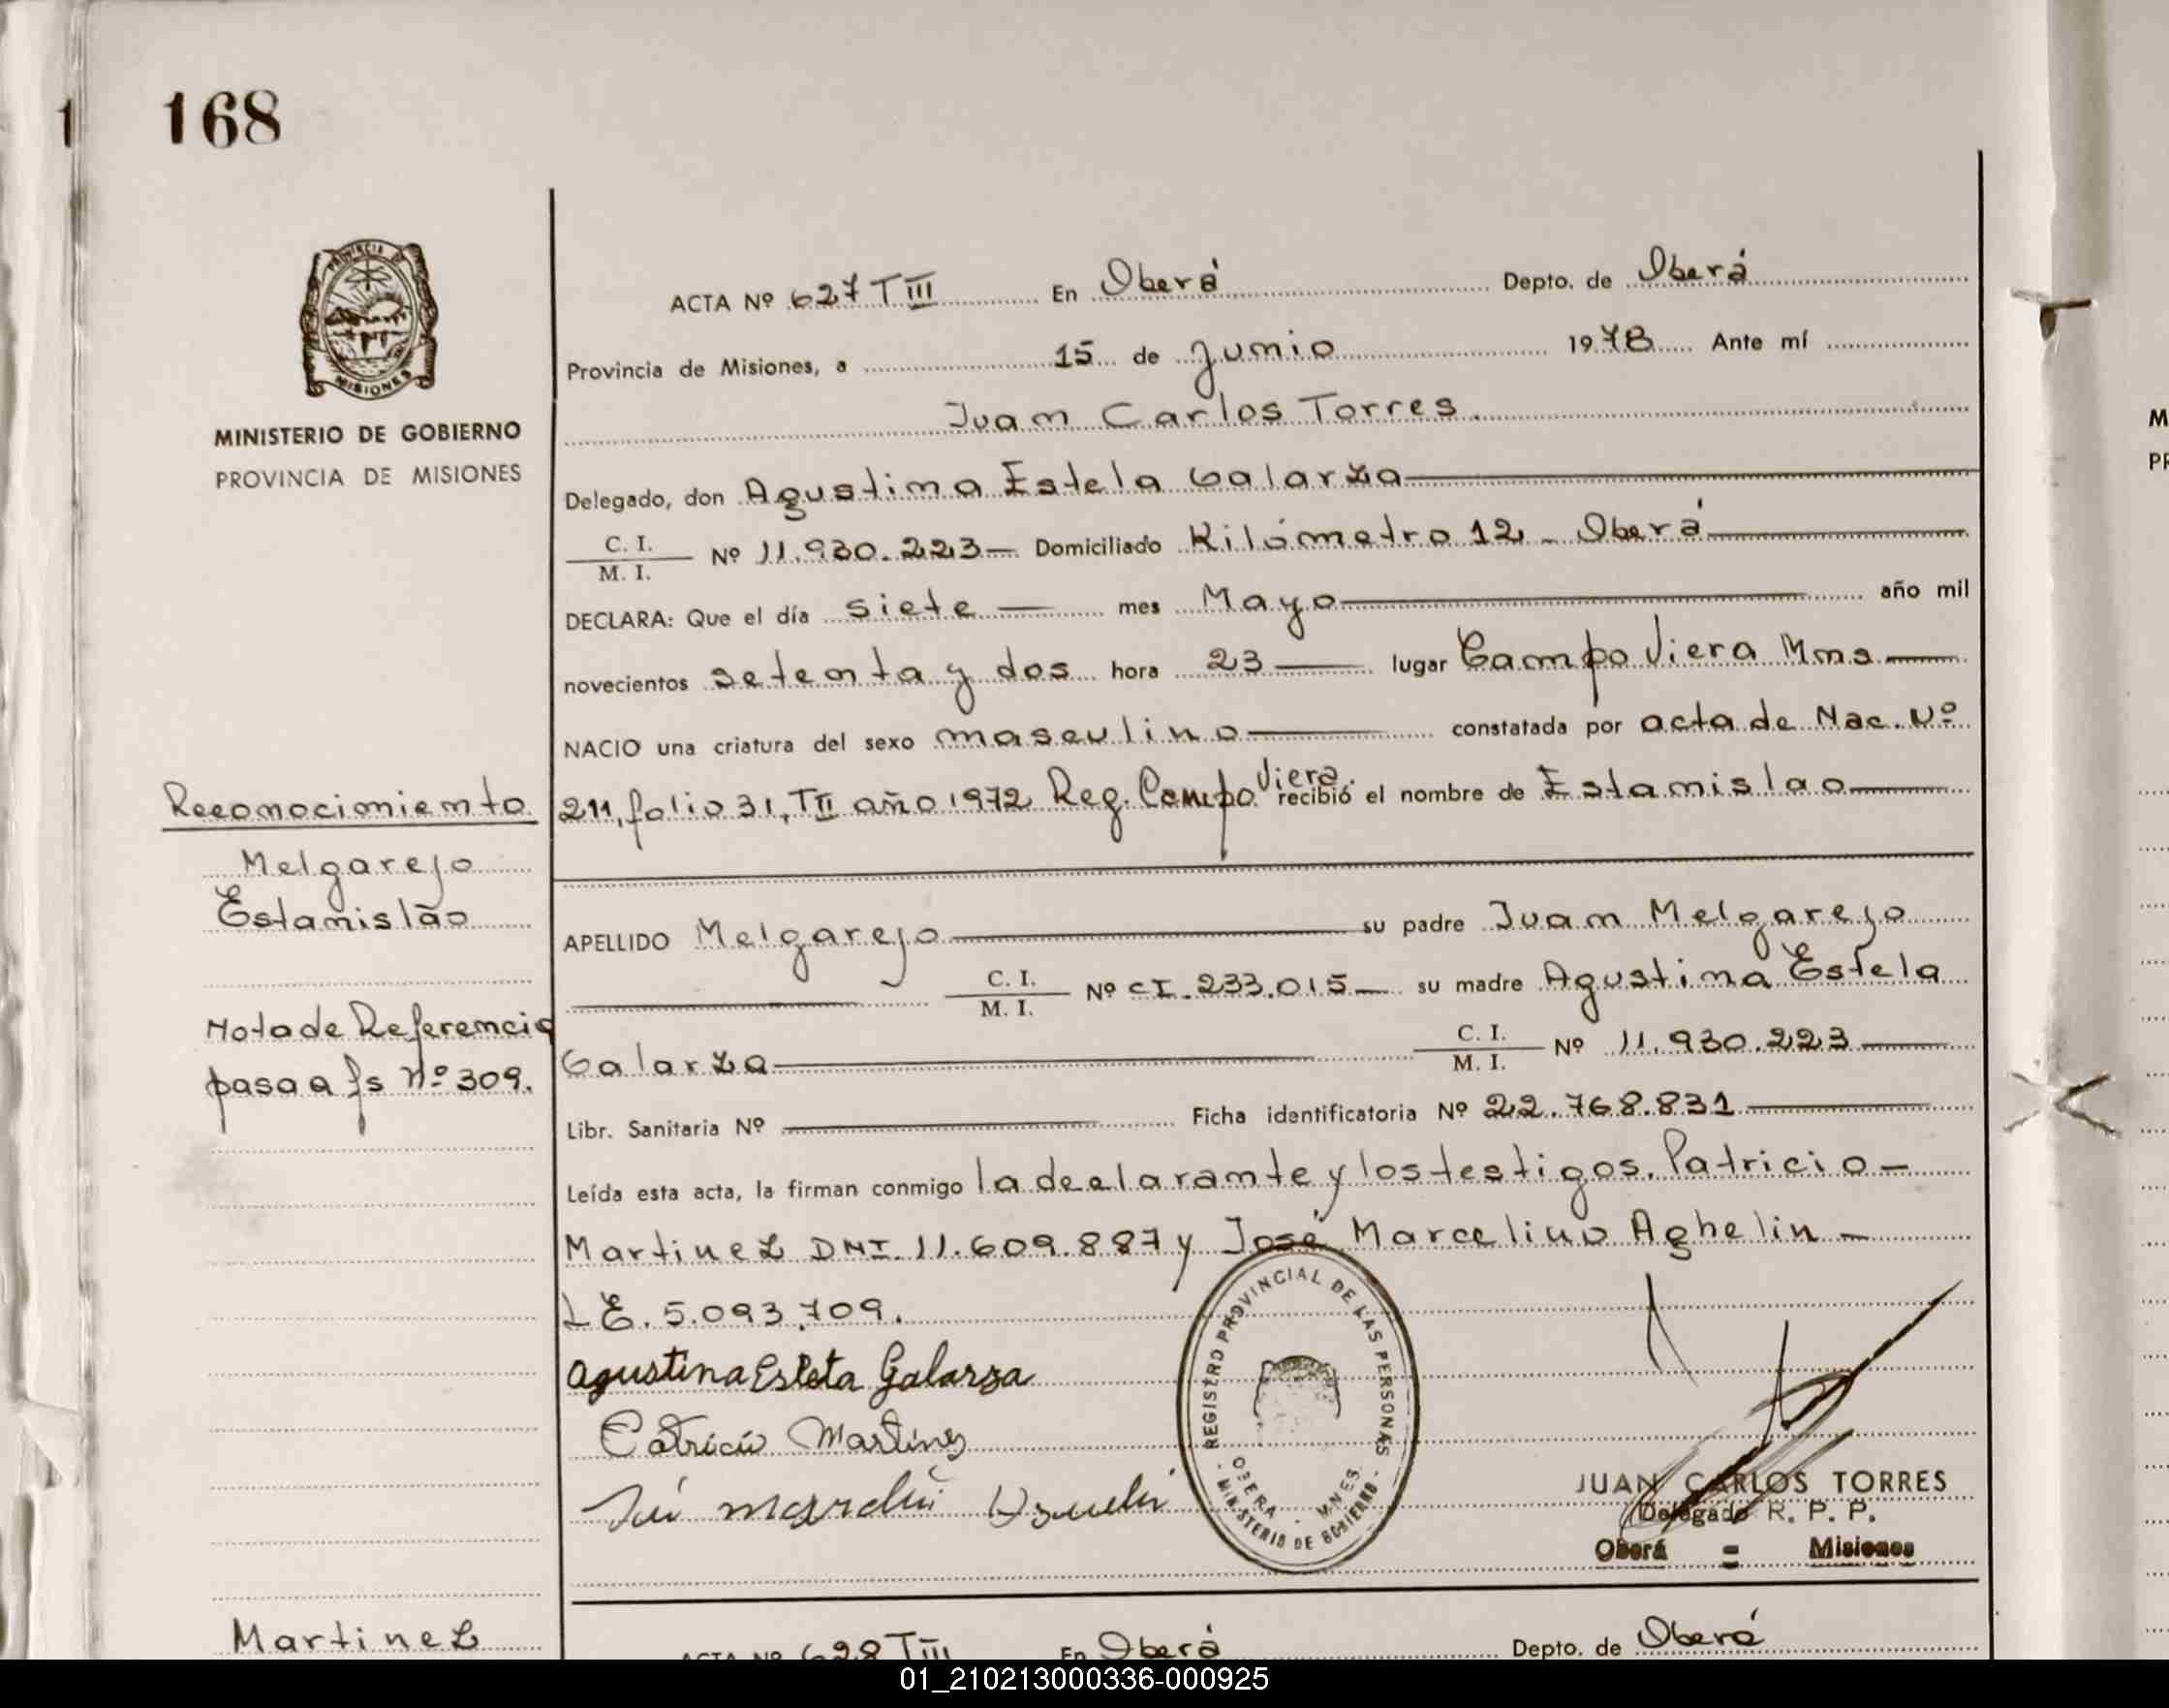 1
168
PROVINCIA DE
MISIONES
MINISTERIO DE GOBIERNO
PROVINCIA DE MISIONES
ACTA Nº 627 T III En Oberá Depto. de Oberá
Provincia de Misiones, a 15 de Junio 1978 Ante mí
Juan Carlos Torres.
Delegado, don Agustina Estela Galarza
C. I.
M. I. Nº 11.930.223 Domiciliado Kilómetro 12 - Oberá
DECLARA: Que el día siete mes Mayo año mil
novecientos setenta y dos hora 23 lugar Campo Viera Mns
NACIO una criatura del sexo masculino constatada por acta de Nac. Nº
211, folio 31, T II año 1972 Reg. Campo Viera. recibió el nombre de Estanislao
Reconocimiento
Melgarejo
Estanislão
Nota de Referencia
pasa a fs nº 309.
APELLIDO Melgarejo su padre Juan Melgarejo
C. I.
M. I. Nº CI. 233.015 su madre Agustina Estela
Galarza C. I.
M. I. Nº 11.930.223
Libr. Sanitaria Nº Ficha identificatoria Nº 22.768.831
Leída esta acta, la firman conmigo la declarante y los testigos. Patricio -
Martinez DNI. 11.609.887 y José Marcelino Aghelin -
LE. 5.093.709.
Agustina Estela Galarza
Patricio Martinez
REGISTRO PROVINCIAL DE LAS PERSONAS
OBERA - MNES.
- MINISTERIO DE GOBIERNO -
JUAN CARLOS TORRES
Delegado R. P. P.
Oberá = Misiones
Martinez
ACTA Nº 628 T III En Oberá Depto. de Oberá
M
PR
01_210213000336-000925